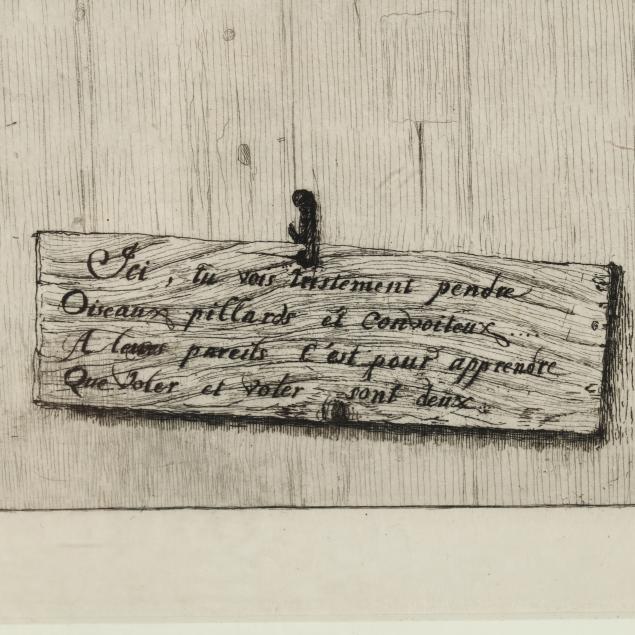 Ici, tu vois tristement pendre
Oiseaux pillards et Convoiteux ....
A leurs pareils C'est pour apprendre
Que Voler et voler sont deux..